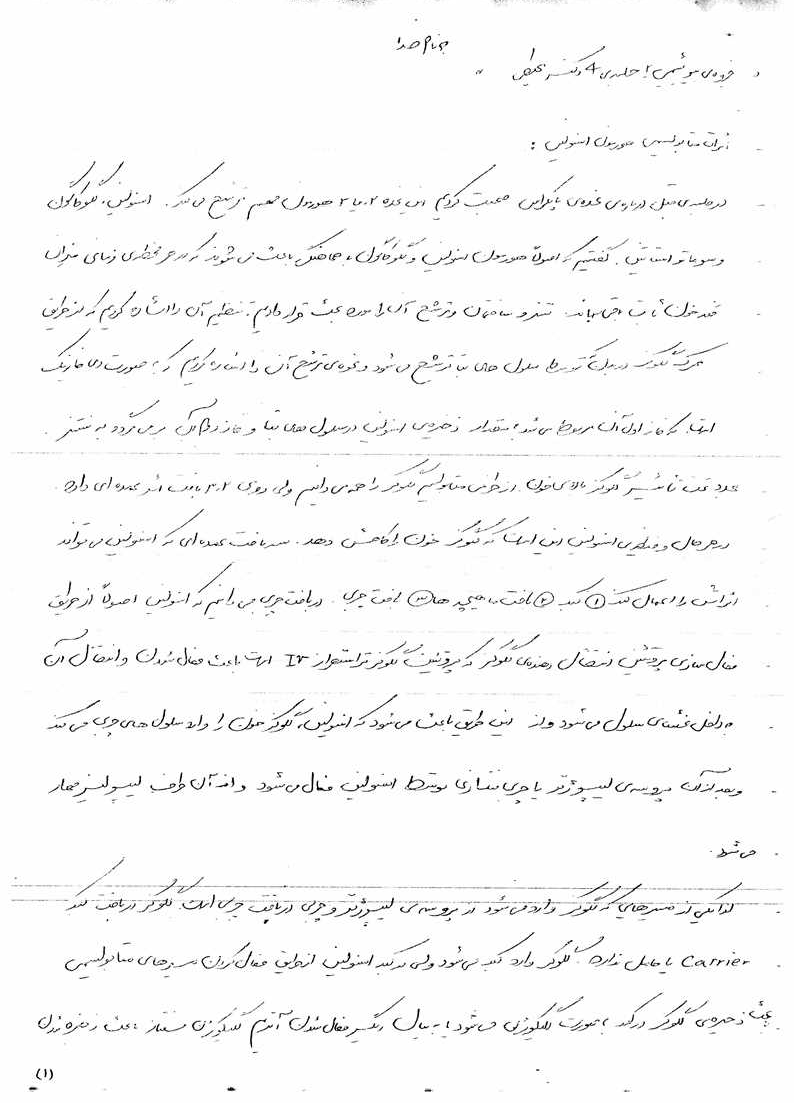 بنام خدا
جزوه‌ی بیوشیمی ۲ جلسه‌ی 4 دکتر
اثرات متابولیسمی هورمون انسولین :
در جلسه‌ی قبل درباره‌ی غده‌ی پانکراس صحبت کردیم این غده ۲ یا ۳ هورمون مهم ترشح می‌کند. انسولین، گلوکاگون
و سوماتواستاتین. گفتیم که اصولاً هورمون انسولین و گلوکاگون با هماهنگی باعث می‌شوند که در هر لحظه‌ی زمانی میزان
قند خون ثابت باقی بماند. سنتز و ساختمان و ترشح آن را مورد بحث قرار دادیم. تنظیم آن را اشاره کردیم که از طریق
محرک گلوکز در پانکراس توسط سلول های بتا ترشح می شود و نحوه‌ی ترشح آن را اشاره کردیم که به صورت دی فازیک
است. که فاز اول آن مربوط می‌شد به مقدار ذخیره‌ی انسولین در سلول های بتا و فاز دوم آن بر می گردد به سنتز
مجدد تحت تأثیر گلوکز بالای خون. اثرات متابولیسم گلوکز را همه می دانیم ولی روی ۲، ۳ بافت اثر عمده ای دارد.
در هر حال وظیفه‌ی انسولین این است که گلوکز خون را کاهش دهد. سه بافت عمده ای که انسولین می تواند
اثراتش را اعمال کند ① کبد ② بافت ماهیچه ها ③ بافت چربی. در بافت چربی می دانیم که انسولین اصولاً از طریق
فعال سازی پروتئین انتقال دهنده‌ی گلوکز که پروتئین گلوکز ترانسپورتر است باعث فعال شدن و انتقال آن
به داخل غشای سلول می شود و از این طریق باعث می شود که انسولین، گلوکز خون را وارد سلول های چربی می کند
و بعد از آن پروسه‌ی لیپوژنز یا چربی سازی توسط انسولین فعال می شود و از آن طرف لیپولیز مهار
می شود.
لذا یکی از مسیرهایی که گلوکز وارد می شود در پروسه‌ی لیپوژنز و چربی در بافت چربی است. گلوکز در بافت کبد
Carrier یا حامل ندارد. گلوکز وارد کبد می شود ولی در کبد انسولین از طریق فعال کردن مسیرهای متابولیسمی
باعث ذخیره‌ی گلوکز در کبد به صورت گلیکوژن می شود یا به بیان دیگر فعال شدن آنزیم گلیکوژن سنتاز باعث ذخیره شدن
(۱)